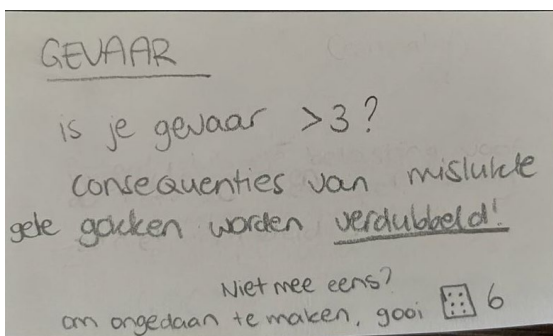 GEVAAR
is je gevaar >3?
consequenties van mislukte
gele gokken worden verdubbeld!
Niet mee eens?
om ongedaan te maken, gooi 6